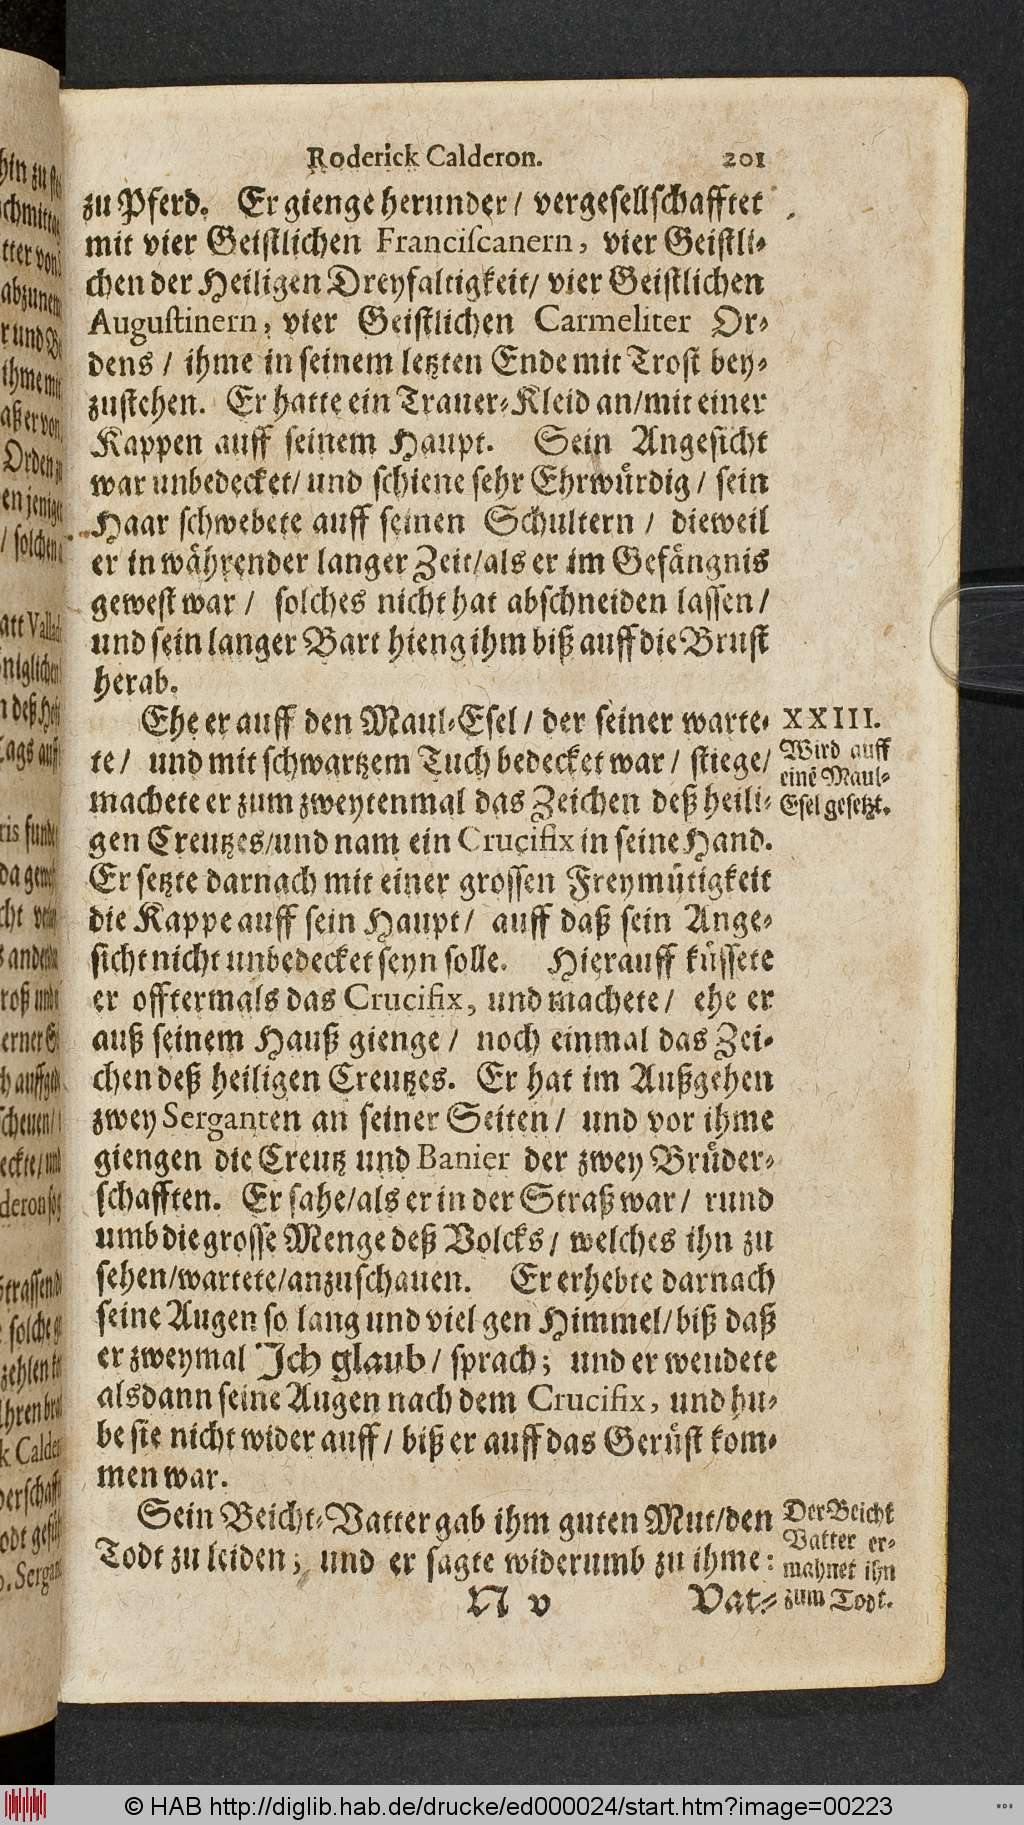 Roderick Calderon. 201
zu Pferd. Er gienge herunder / vergesellschafftet
mit vier Geistlichen Franciscanern, vier Geistli-
chen der Heiligen Dreyfaltigkeit / vier Geistlichen
Augustinern, vier Geistlichen Carmeliter Or-
dens / ihme in seinem letzten Ende mit Trost bey-
zustehen. Er hatte ein Trauer-Kleid an / mit einer
Kappen auff seinem Haupt. Sein Angesicht
war unbedecket / und schiene sehr Ehrwürdig / sein
Haar schwebete auff seinen Schultern / dieweil
er in währender langer Zeit / als er im Gefängnis
gewest war / solches nicht hat abschneiden lassen /
und sein langer Bart hieng ihm biß auff die Brust
herab.
Ehe er auff den Maul-Esel / der seiner warte-
te / und mit schwartzem Tuch bedecket war / stiege /
machete er zum zweytenmal das Zeichen deß heili-
gen Creutzes / und nam ein Crucifix in seine Hand.
Er setzte darnach mit einer grossen Freymütigkeit
die Kappe auff sein Haupt / auff daß sein Ange-
sicht nicht unbedecket seyn solle. Hierauff küssete
er offtermals das Crucifix, und machete / ehe er
auß seinem Hauß gienge / noch einmal das Zei-
chen deß heiligen Creutzes. Er hat im Außgehen
zwey Serganten an seiner Seiten / und vor ihme
giengen die Creutz und Banier der zwey Brüder-
schafften. Er sahe / als er in der Straß war / rund
umb die grosse Menge deß Volcks / welches ihn zu
sehen / wartete / anzuschauen. Er erhebte darnach
seine Augen so lang und viel gen Himmel / biß daß
er zweymal Ich glaub / sprach; und er wendete
alsdann seine Augen nach dem Crucifix, und hu-
be sie nicht wider auff / biß er auff das Gerüst kom-
men war.
Sein Beicht-Vatter gab ihm guten Mut / den
Todt zu leiden; und er sagte widerumb zu ihme:
N v Vat-
XXIII.
Wird auff
einē Maul-
Esel gesetzt.
Der Beicht
Vatter er-
mahnet ihn
zum Todt.
© HAB http://diglib.hab.de/drucke/ed000024/start.htm?image=00223